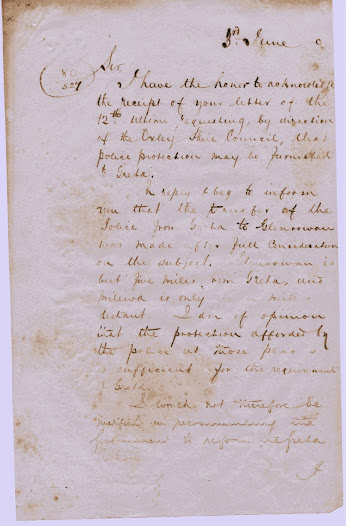 3rd June
80
527
Sir,
I have the honor to acknowledge
the receipt of your letter of the
12th ultimo, requesting, by direction
of the Oxley Shire Council, that
police protection may be furnished
to Greta.
In reply I beg to inform
you that the transfer of the
Police from Greta to Glenrowan
was made after full consideration
on the subject. Glenrowan is
but five miles from Greta, and
Milawa is only miles
distant. I am of opinion
that the protection afforded by
the police at those places
is sufficient for the requirements
of Greta.
I would not therefore be
justified in recommending the
Government to